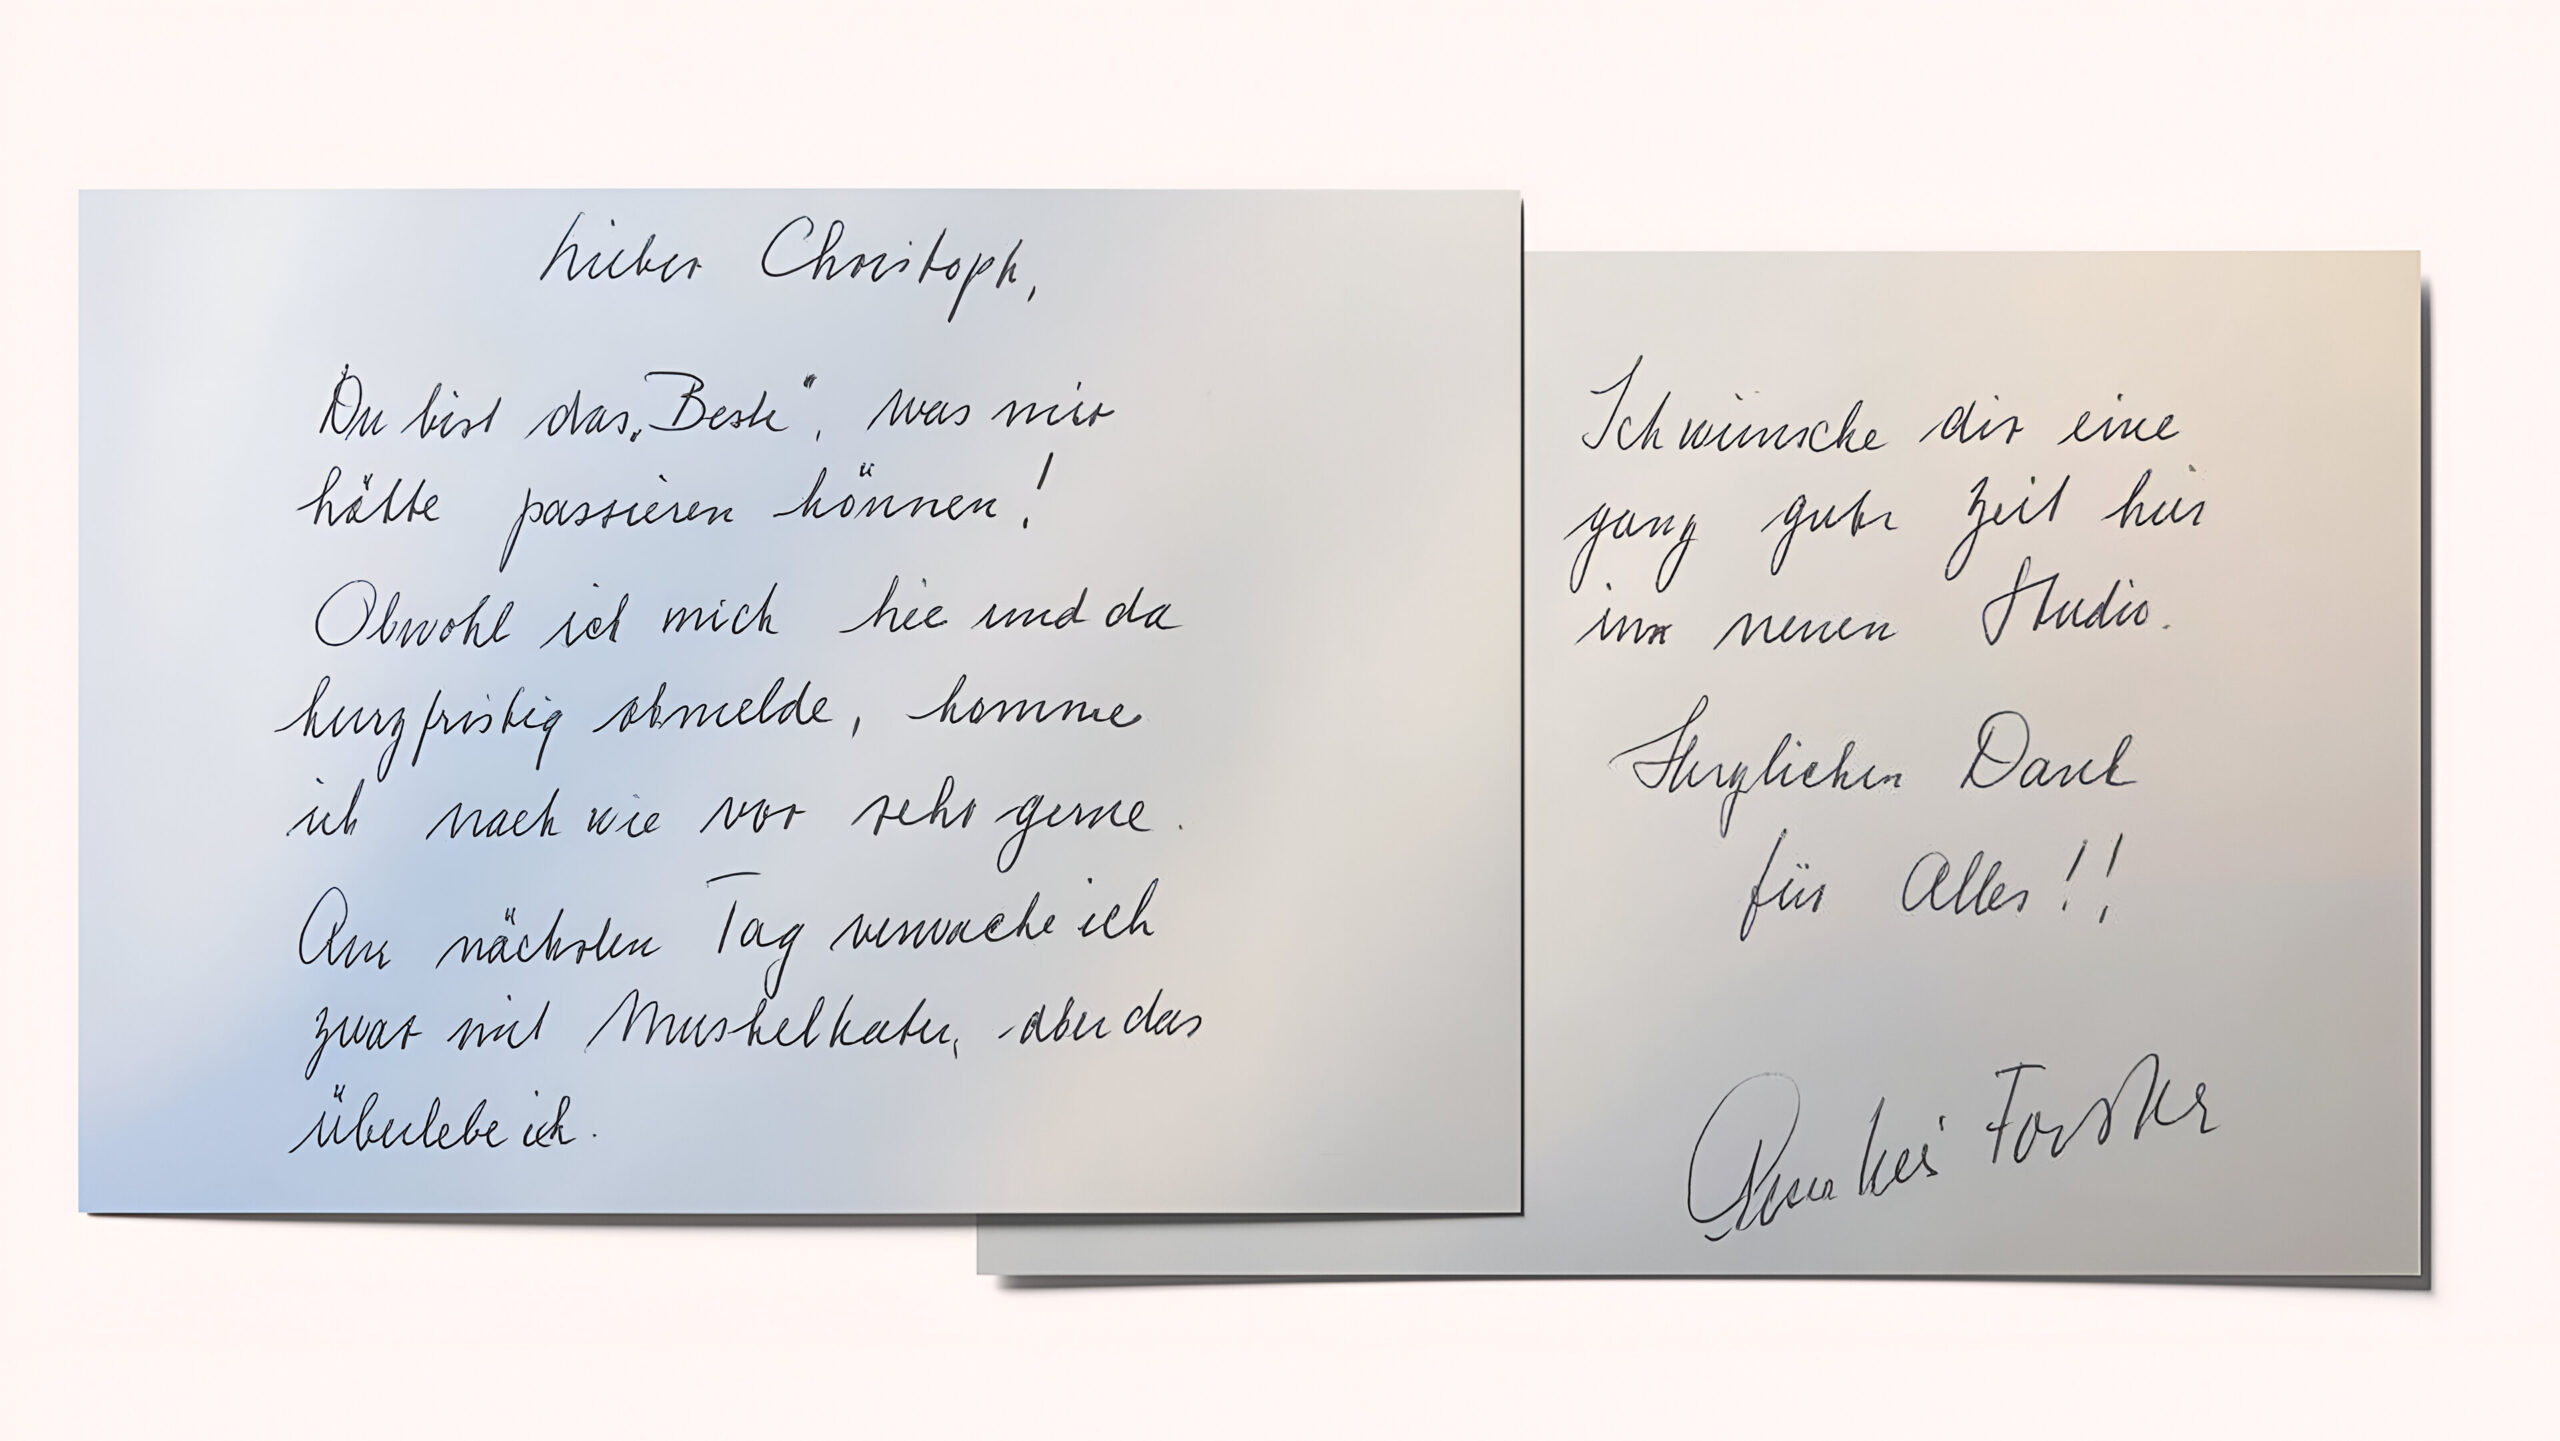 Lieber Christoph,
Du bist das „Beste“, was mir
hätte passieren können!
Obwohl ich mich hie und da
kurzfristig abmelde, komme
ich nach wie vor sehr gerne.
Am nächsten Tag verwache ich
zwar mit Muskelkater, aber das
überlebe ich.
Ich wünsche dir eine
ganz gute Zeit hier
im neuen Studio.
Herzlichen Dank
für Alles!!
Forster